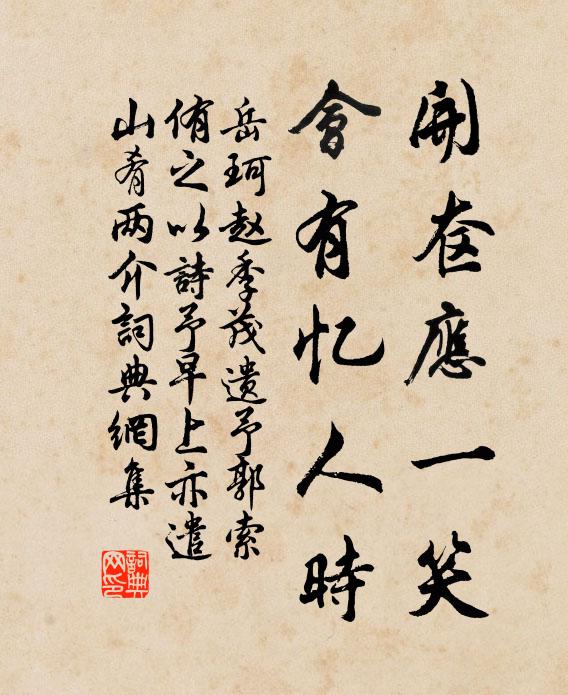 開奁應一笑
會有忆人時
岳珂趙季茂遺予郭索
侑之以詩予早上亦遣
山肴两介詞典網集
詞典网印